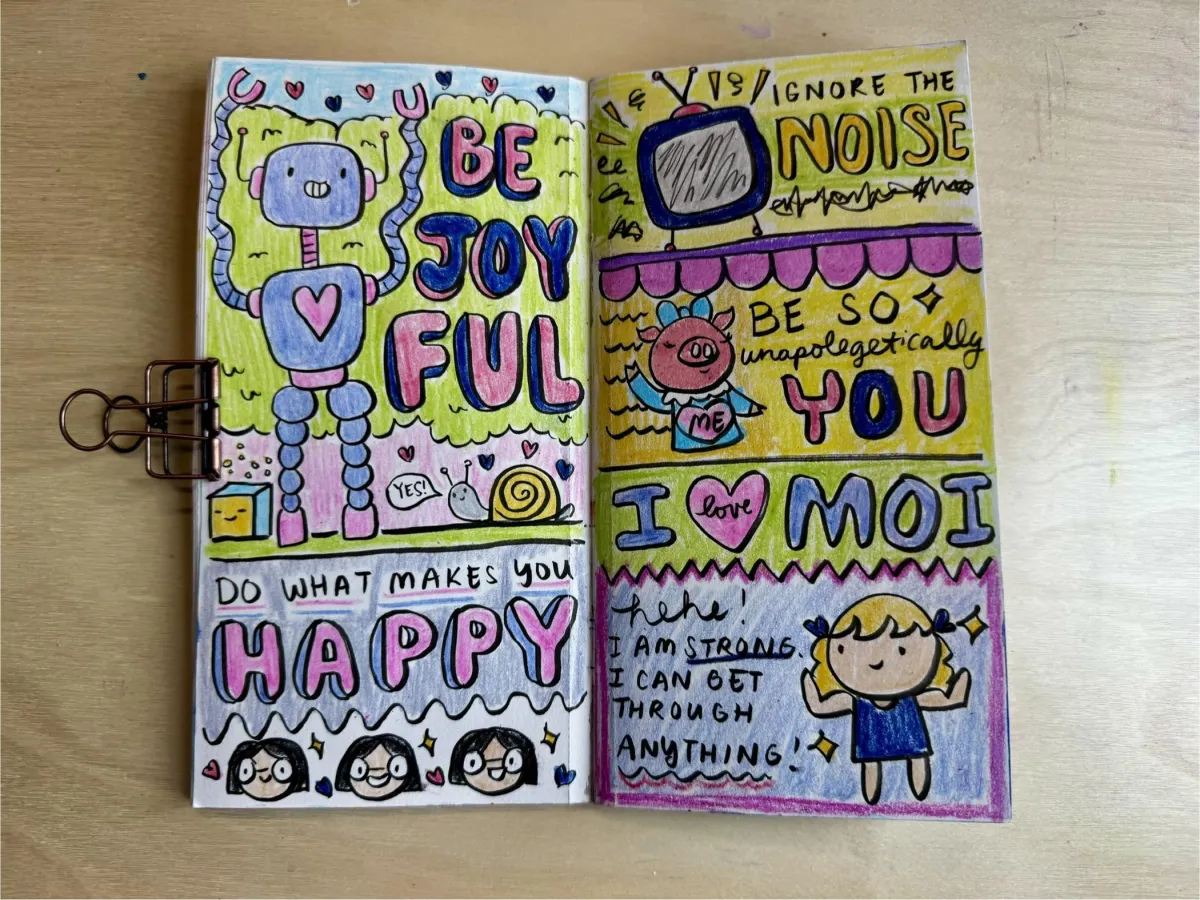 BE
JOY
FUL
YES!
DO WHAT MAKES YOU
HAPPY
IGNORE THE
NOISE
BE SO
unapolegetically
YOU
ME
I love MOI
hehe!
I AM STRONG.
I CAN GET
THROUGH
ANYTHING!